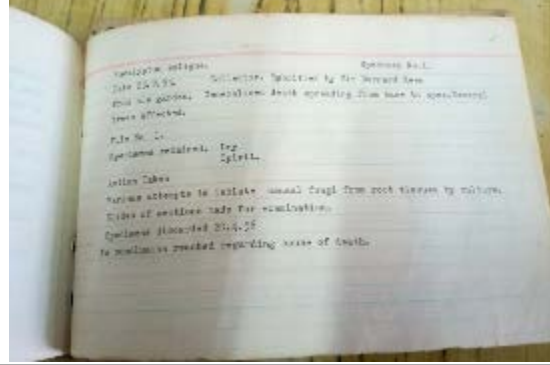 Specimen No.1.
Collector. Submitted by Sir Bernard
from garden. Generalised death spreading from base to apex. Several
trees affected.
File No 1.
Specimens retained. Dry
Spirit.
Action Taken
Various attempts to isolate causal fungi from root tissues by culture.
Slides of sections made for examination.
Specimens discarded 20.4.56
No conclusion reached regarding cause of death.